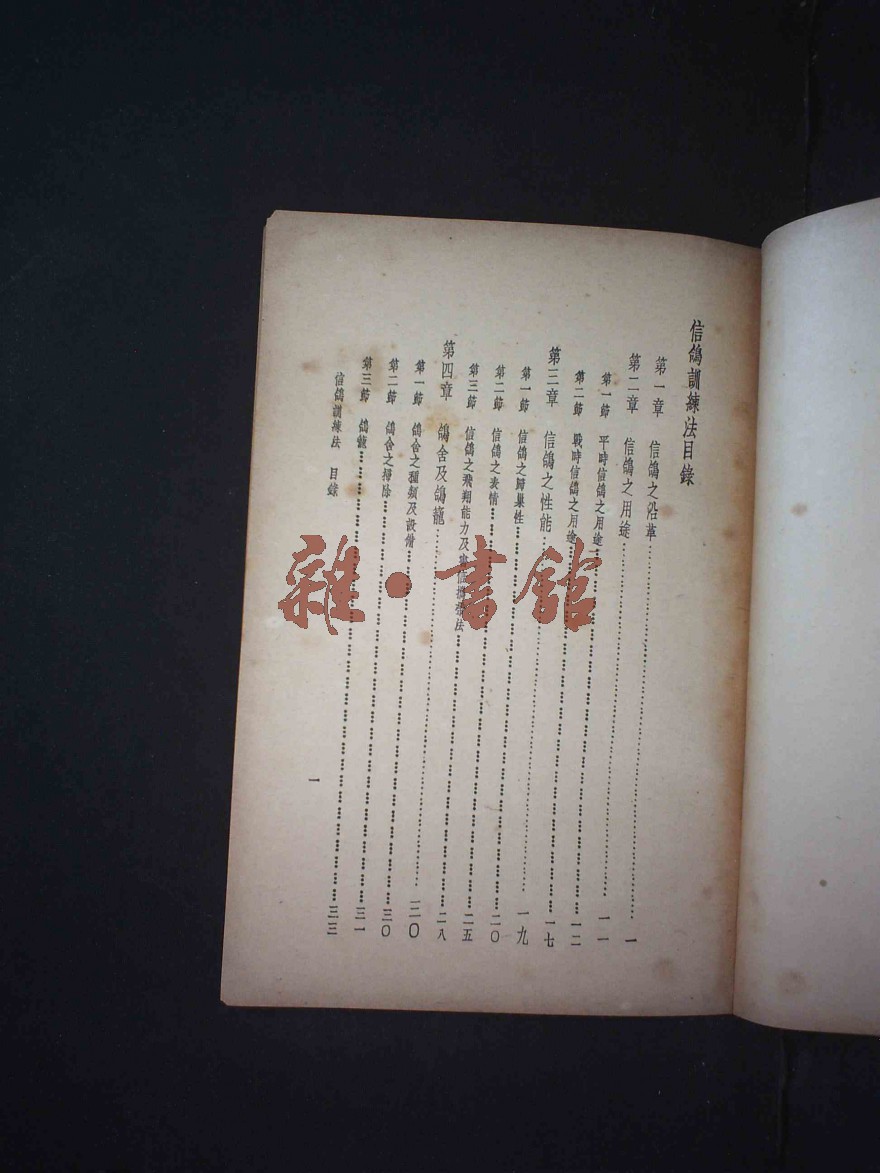 信鴿訓練法目錄
第一章 信鴿之沿革……一
第二章 信鴿之用途……一一
第一節 平時信鴿之用途……一二
第二節 戰時信鴿之用途……一七
第三章 信鴿之性能……一九
第一節 信鴿之歸巢性……二〇
第二節 信鴿之表情……二五
第三節 信鴿之飛翔能力及法……二八
第四章 鴿舍及鴿籠……三〇
第一節 鴿舍之種類及設備……三〇
第二節 鴿舍之掃除……三一
第三節 鴿籠……三三
信鴿訓練法 目錄
一
雜·書館